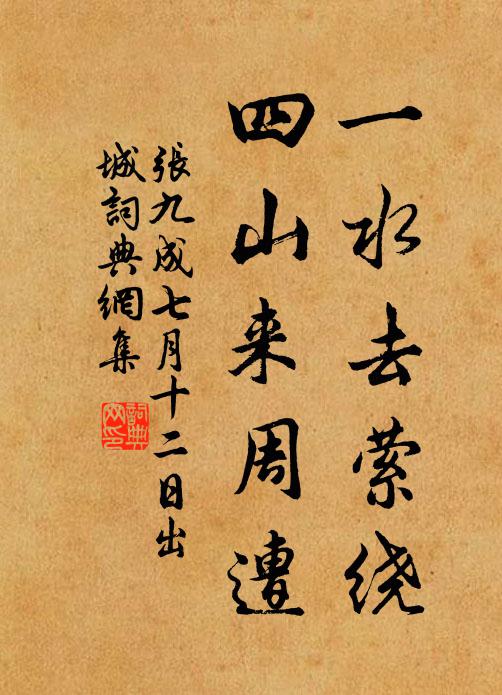 一水去萦绕
四山来周遭
張九成七月十二日出
城詞典網集
詞典
网印